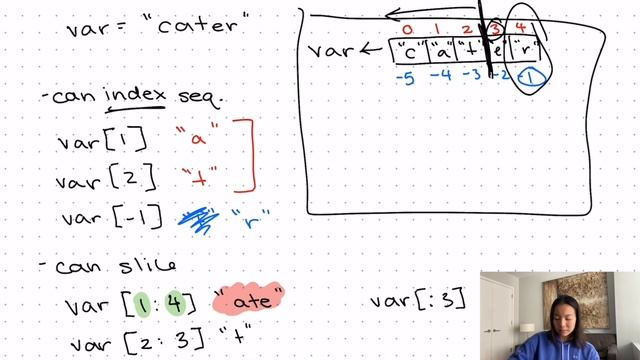 var = "cater"
0 1 2 3 4
var ← "c" "a" "t" "e" "r"
-5 -4 -3 -2 -1
-can index seq.
var[1] "a"
var[2] "t"
var[-1] "r"
-can slice
var [1:4] "ate"
var[:3]
var [2:3] "t"